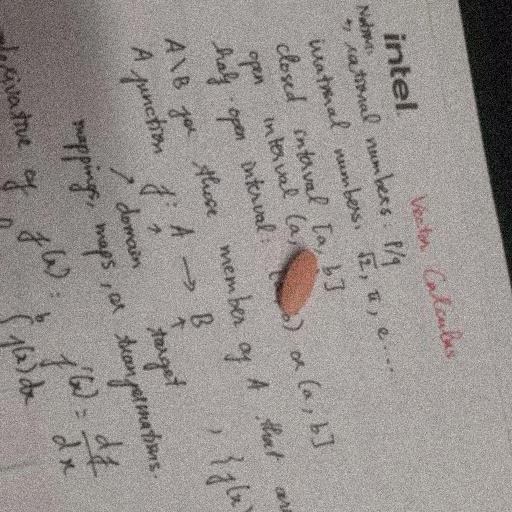 intel
Vector Calculus
Notion:
→ rational numbers: p/q
irrational numbers. √2, π, e....
closed interval [a, b]
open interval (a,
half-open interval: ) or (a, b]
A\B for those member of A that are
A function f: A → B , {f(x)
domain target
mappings, maps, or transformations.
derivative of f(x): f'(x) = df/dx
b
∫ f(x) dx